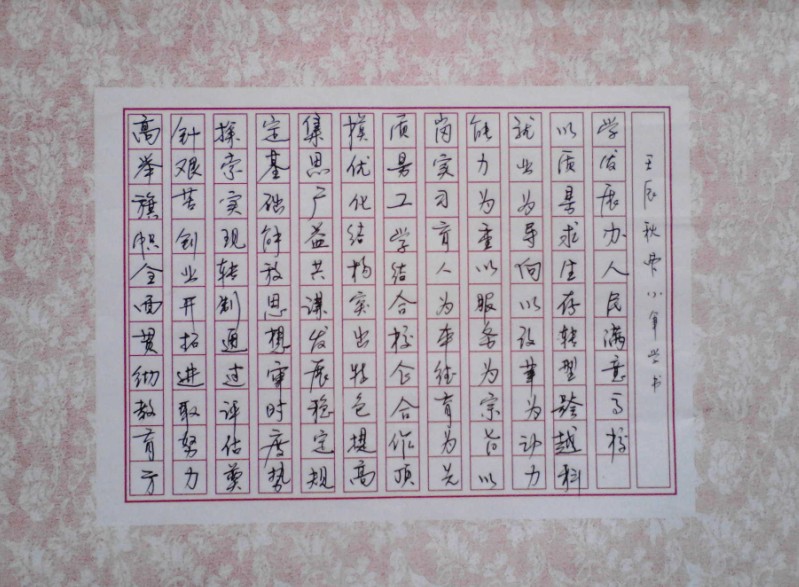 高举旗帜全面贯彻教育方
针艰苦创业开拓进取努力
探索实现转制通过评估奠
定基础解放思想审时度势
集思广益共谋发展稳定规
模优化结构突出特色提高
质量工学结合校企合作顶
岗实习育人为本德育为先
能力为重以服务为宗旨以
就业为导向以改革为动力
以质量求生存转型跨越科
学发展办人民满意高校
壬辰秋小军学书